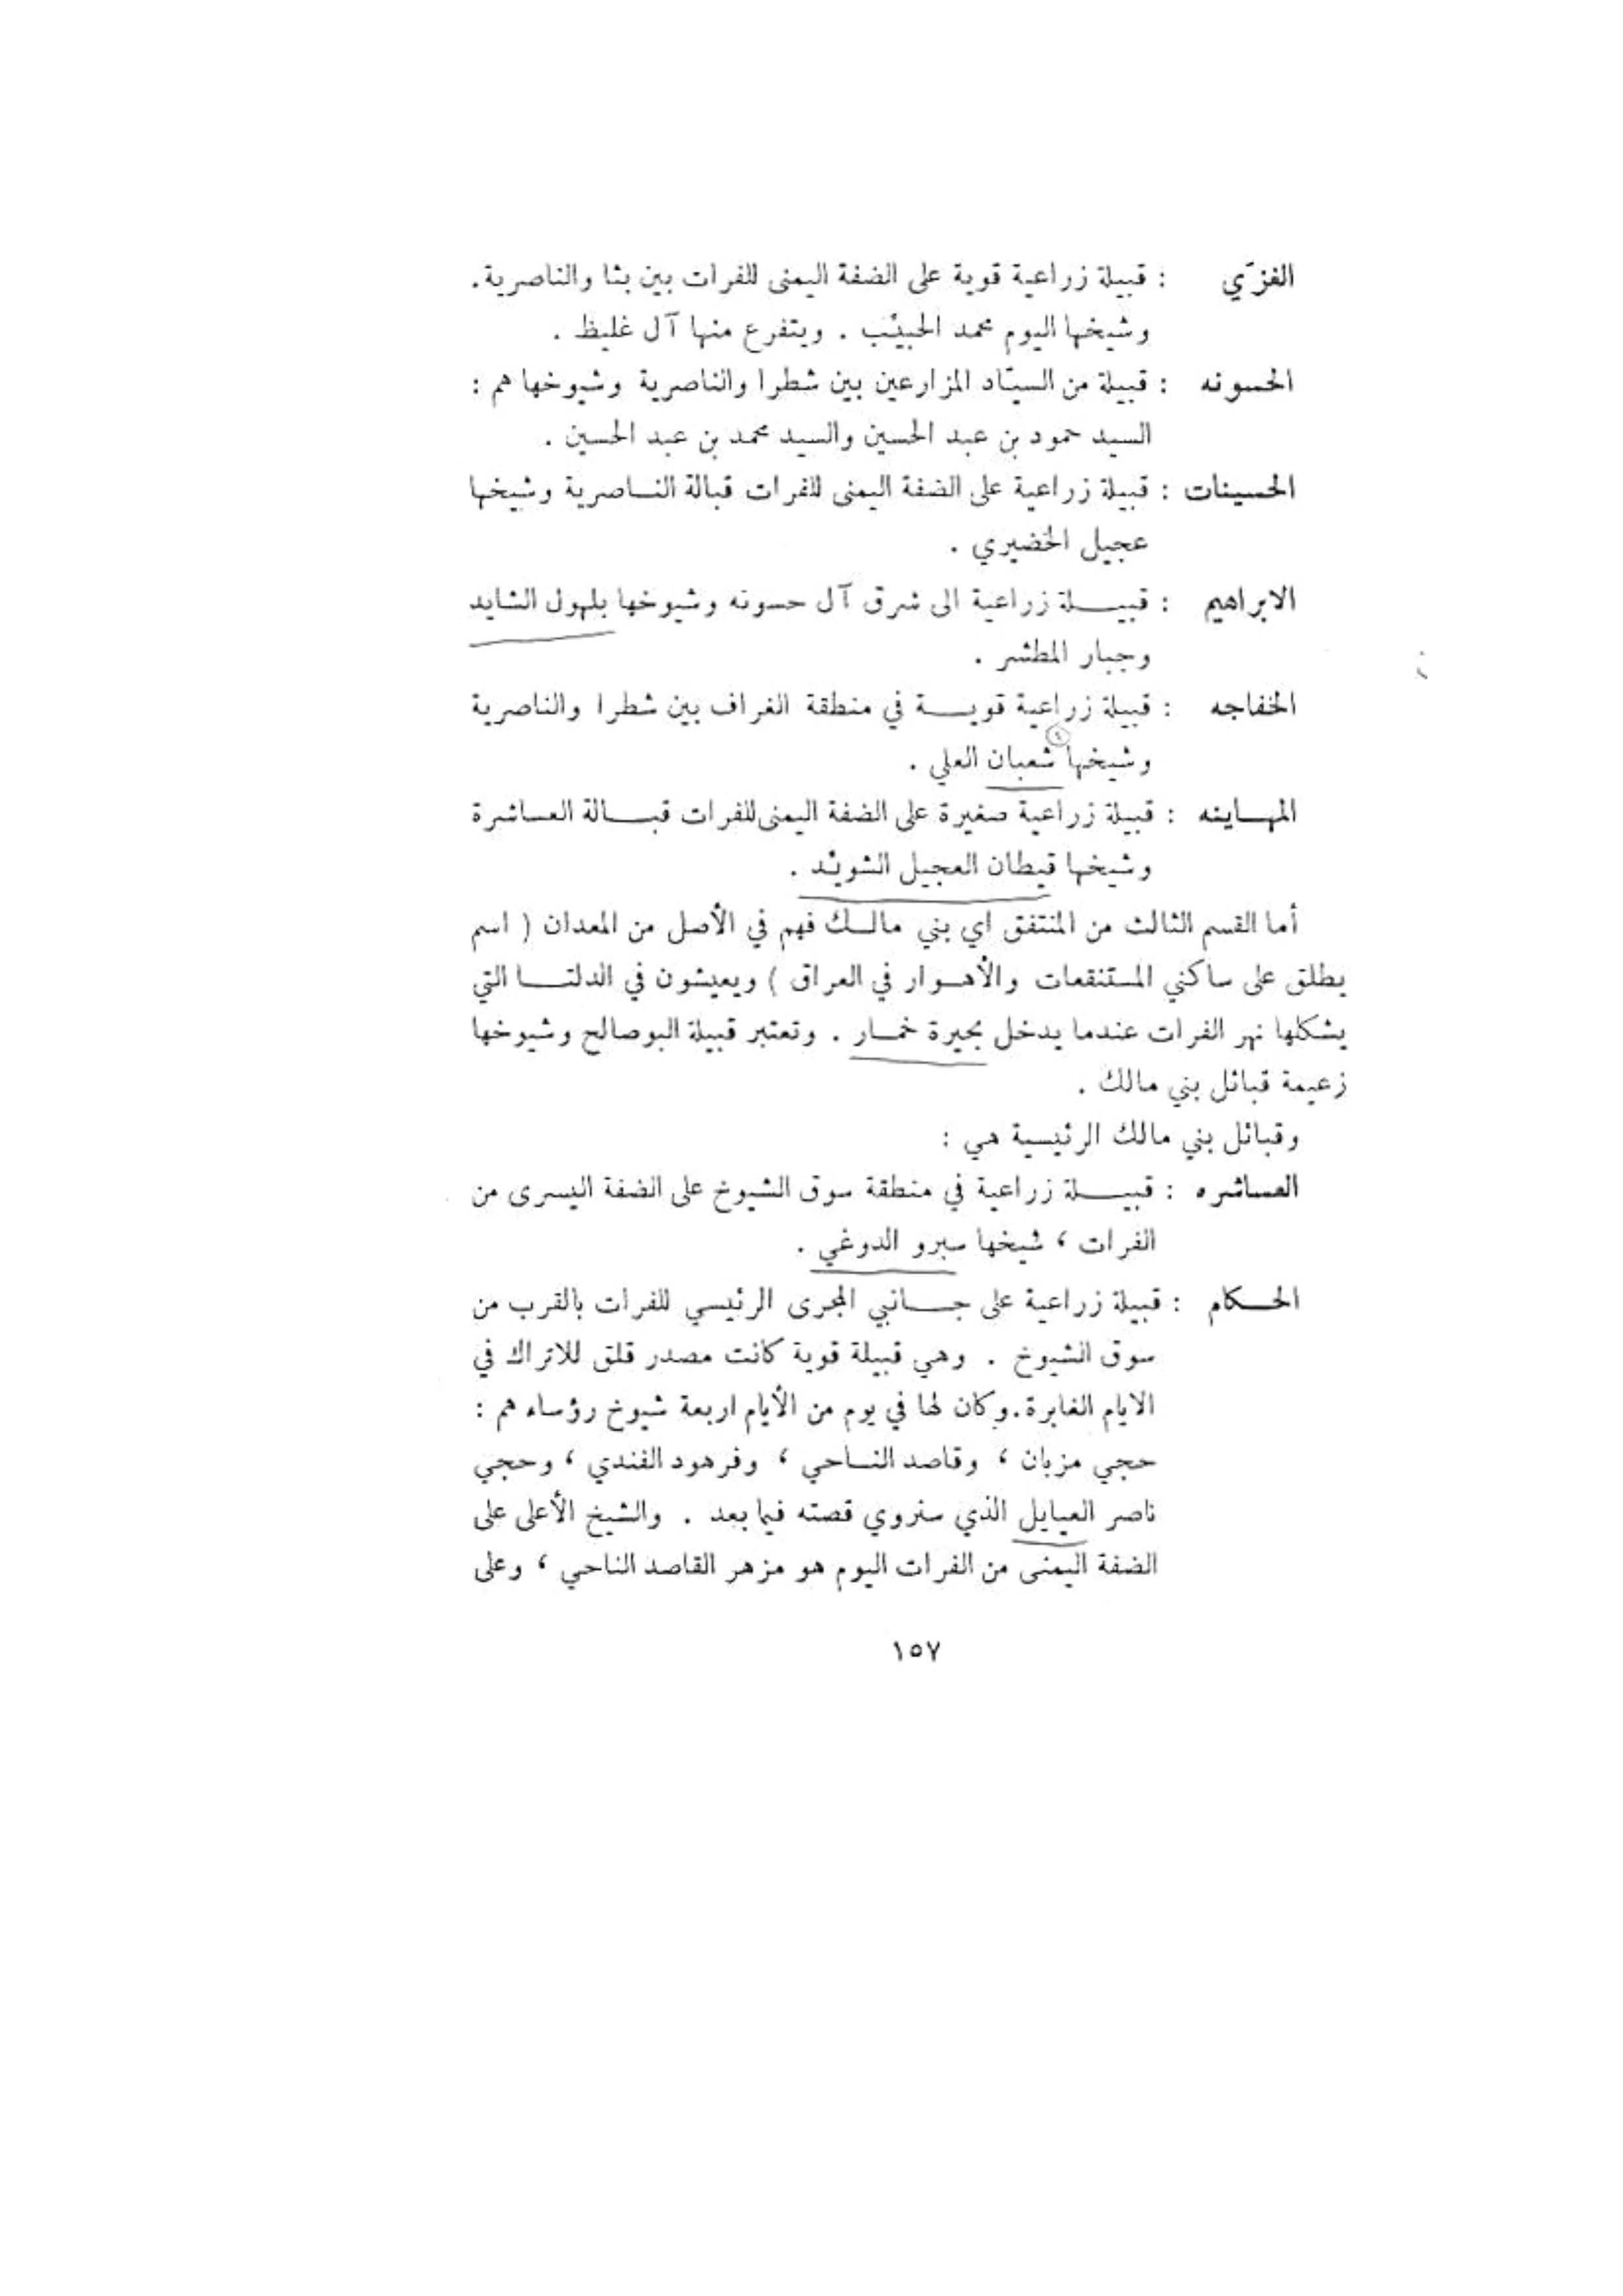 الغزّي : قبيلة زراعية قوية على الضفة اليمنى للفرات بين بثا والناصرية.
وشيخها اليوم محمد الحبيّب . ويتفرع منها آل غليظ .
الحسونه : قبيلة من السيّاد المزارعين بين شطرا والناصرية وشيوخها هم :
السيد حمود بن عبد الحسين والسيد محمد بن عبد الحسين .
الحسينات : قبيلة زراعية على الضفة اليمنى للفرات قبالة الناصرية وشيخها
عجيل الخضيري .
الابراهيم : قبيلة زراعية الى شرق آل حسونه وشيوخها بلهول الشايد
وجبار المطشر .
الخفاجه : قبيلة زراعية قوية في منطقة الغراف بين شطرا والناصرية
وشيخها شعبان العلي .
المهاينه : قبيلة زراعية صغيرة على الضفة اليمنى للفرات قبالة العساشرة
وشيخها قيطان العجيل الشويّد .
أما القسم الثالث من المنتفق اي بني مالك فهم في الأصل من المعدان ( اسم
يطلق على ساكني المستنقعات والأهوار في العراق ) ويعيشون في الدلتا التي
يشكلها نهر الفرات عندما يدخل بحيرة خمار . وتعتبر قبيلة البوصالح وشيوخها
زعيمة قبائل بني مالك .
وقبائل بني مالك الرئيسية هي :
العساشره : قبيلة زراعية في منطقة سوق الشيوخ على الضفة اليسرى من
الفرات ، شيخها سبرو الدوغي .
الحكام : قبيلة زراعية على جانبي المجرى الرئيسي للفرات بالقرب من
سوق الشيوخ . وهي قبيلة قوية كانت مصدر قلق للاتراك في
الايام الغابرة.وكان لها في يوم من الأيام اربعة شيوخ رؤساء هم :
حجي مزبان ، وقاصد الناحي ، وفرهود الفندي ، وحجي
ناصر العيايل الذي سنروي قصته فيما بعد . والشيخ الأعلى على
الضفة اليمنى من الفرات اليوم هو مزهر القاصد الناحي ، وعلى
١٥٧